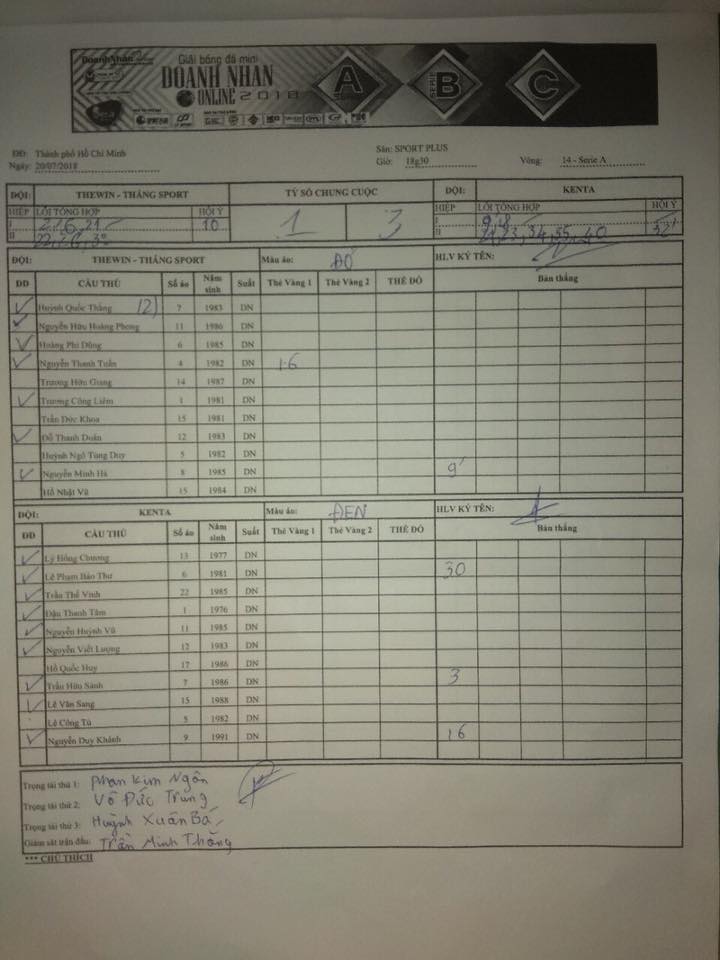 DoanhNhân
Giải bóng đá mini
DOANH NHÂN
ONLINE 2018
A
SERIE B
C
ĐĐ: Thành phố Hồ Chí Minh Sân: SPORT PLUS
Ngày: 20/07/2018 Giờ: 18g30 Vòng: 14 - Serie A
ĐỘI: THEWIN - THĂNG SPORT TỶ SỐ CHUNG CUỘC ĐỘI: KENTA
HIỆP LỖI TỔNG HỢP HỘI Ý 1 3 HIỆP LỖI TỔNG HỢP HỘI Ý
I 10 I
II II
ĐỘI: THEWIN - THĂNG SPORT Màu áo: ĐỎ HLV KÝ TÊN:
DD CẦU THỦ Số áo Năm sinh Suất Thẻ Vàng 1 Thẻ Vàng 2 THẺ ĐỎ Bàn thắng
Huỳnh Quốc Thắng 12) 7 1983 DN
Nguyễn Hữu Hoàng Phong 11 1986 DN
Hoàng Phi Dũng 6 1985 DN
Nguyễn Thanh Tuấn 4 1982 DN 16
Trương Hữu Giang 14 1987 DN
Trương Công Liêm 1 1981 DN
Trần Đức Khoa 15 1981 DN
Đỗ Thanh Doãn 12 1983 DN
Huỳnh Ngô Tùng Duy 5 1982 DN
Nguyễn Minh Hà 8 1985 DN 9'
Hồ Nhật Vũ 15 1984 DN
ĐỘI: KENTA Màu áo: ĐEN HLV KÝ TÊN:
DD CẦU THỦ Số áo Năm sinh Suất Thẻ Vàng 1 Thẻ Vàng 2 THẺ ĐỎ Bàn thắng
Lý Hồng Chương 13 1977 DN
Lê Phạm Bảo Thư 6 1981 DN 30
Trần Thế Vinh 22 1985 DN
Đậu Thanh Tâm 1 1976 DN
Nguyễn Huỳnh Vũ 11 1985 DN
Nguyễn Viết Lượng 12 1983 DN
Hồ Quốc Huy 17 1986 DN
Trần Hữu Sánh 7 1986 DN 3
Lê Văn Sang 15 1988 DN
Lê Công Tú 5 1982 DN
Nguyễn Duy Khánh 9 1991 DN 16
Trọng tài thứ 1: Phan Kim Ngôn
Trọng tài thứ 2: Võ Đức Trung
Trọng tài thứ 3: Huỳnh Xuân Bá
Giám sát trận đấu: Trần Minh Thăng
*** CHÚ THÍCH